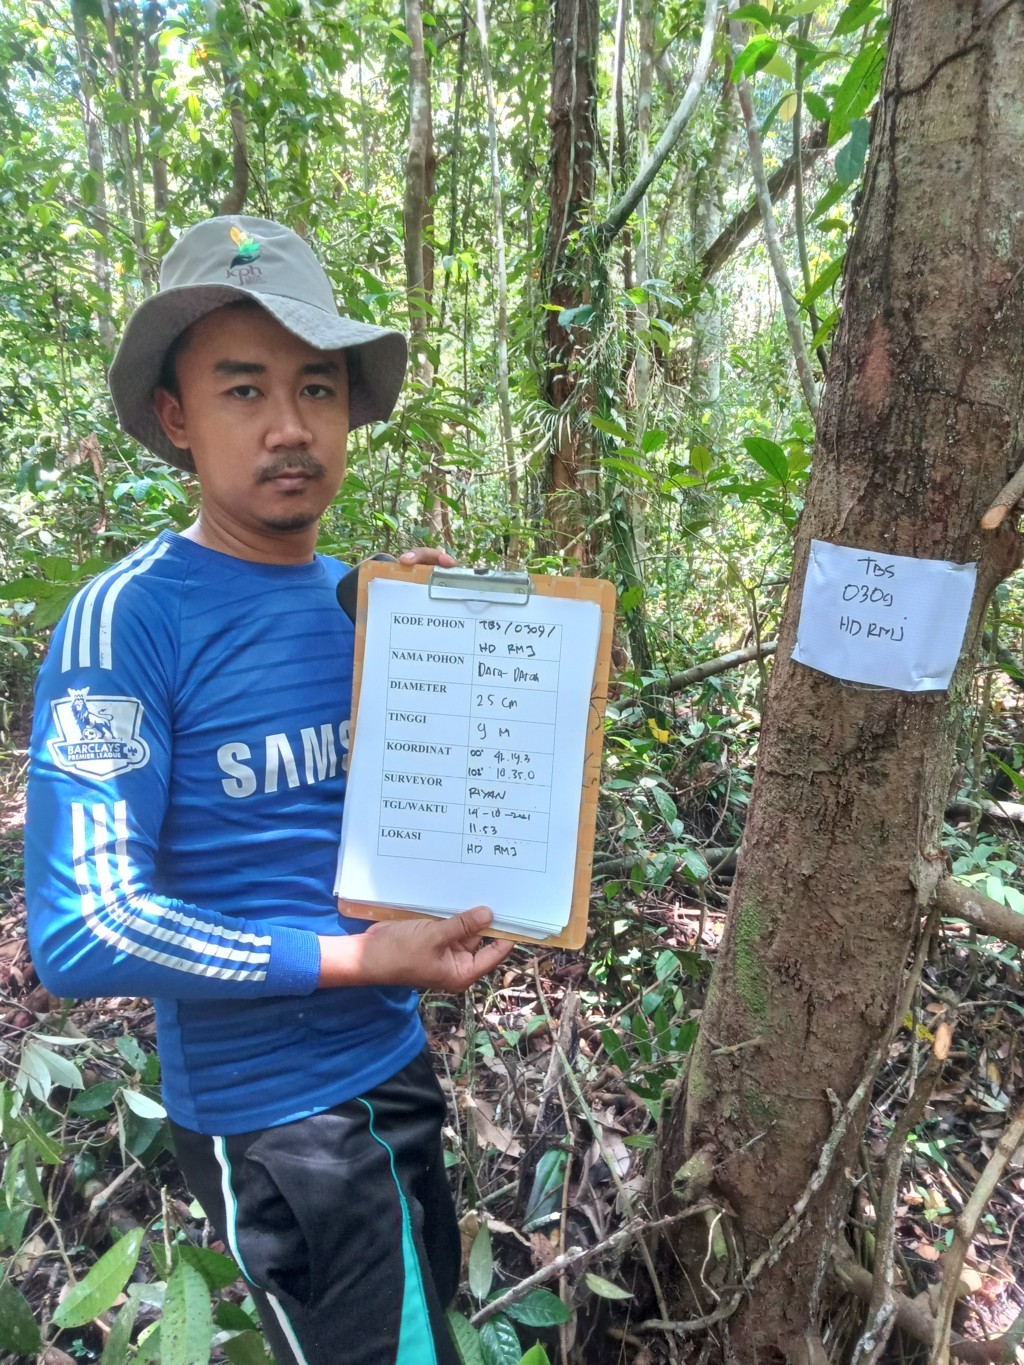 kph
BARCLAYS
PREMIER LEAGUE
SAMS
KODE POHON TBS/0309/
HD RMJ
NAMA POHON Dara-Darah
DIAMETER 25 cm
TINGGI 9 M
KOORDINAT 00° 41.19.3
108° 10.35.0
SURVEYOR RIYAN
TGL/WAKTU 14-10-2021
11.53
LOKASI HD RMJ
TBS
0309
HD RMJ